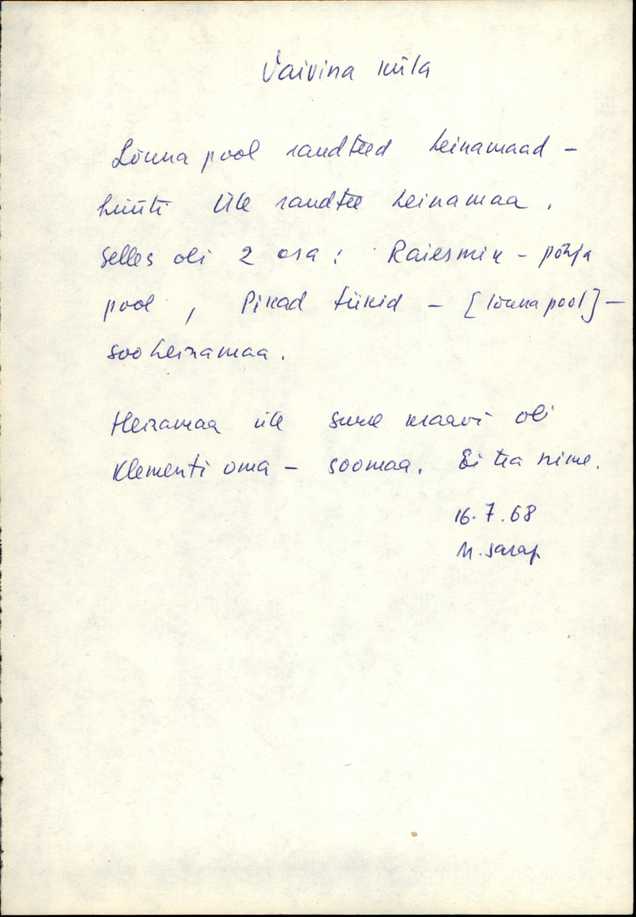 Vaivina küla
Lõuna pool randteed heinamaad -
hüüti Üle randtee heinamaa.
Selles oli 2 osa: Raiesmik - põhja
pool, Pikad tükid - [lõuna pool] -
sooheinamaa.
Heinamaa üle suure kraavi oli
Klementi oma - soomaa. Ei tea nime.
16.7.68
M. Sarap